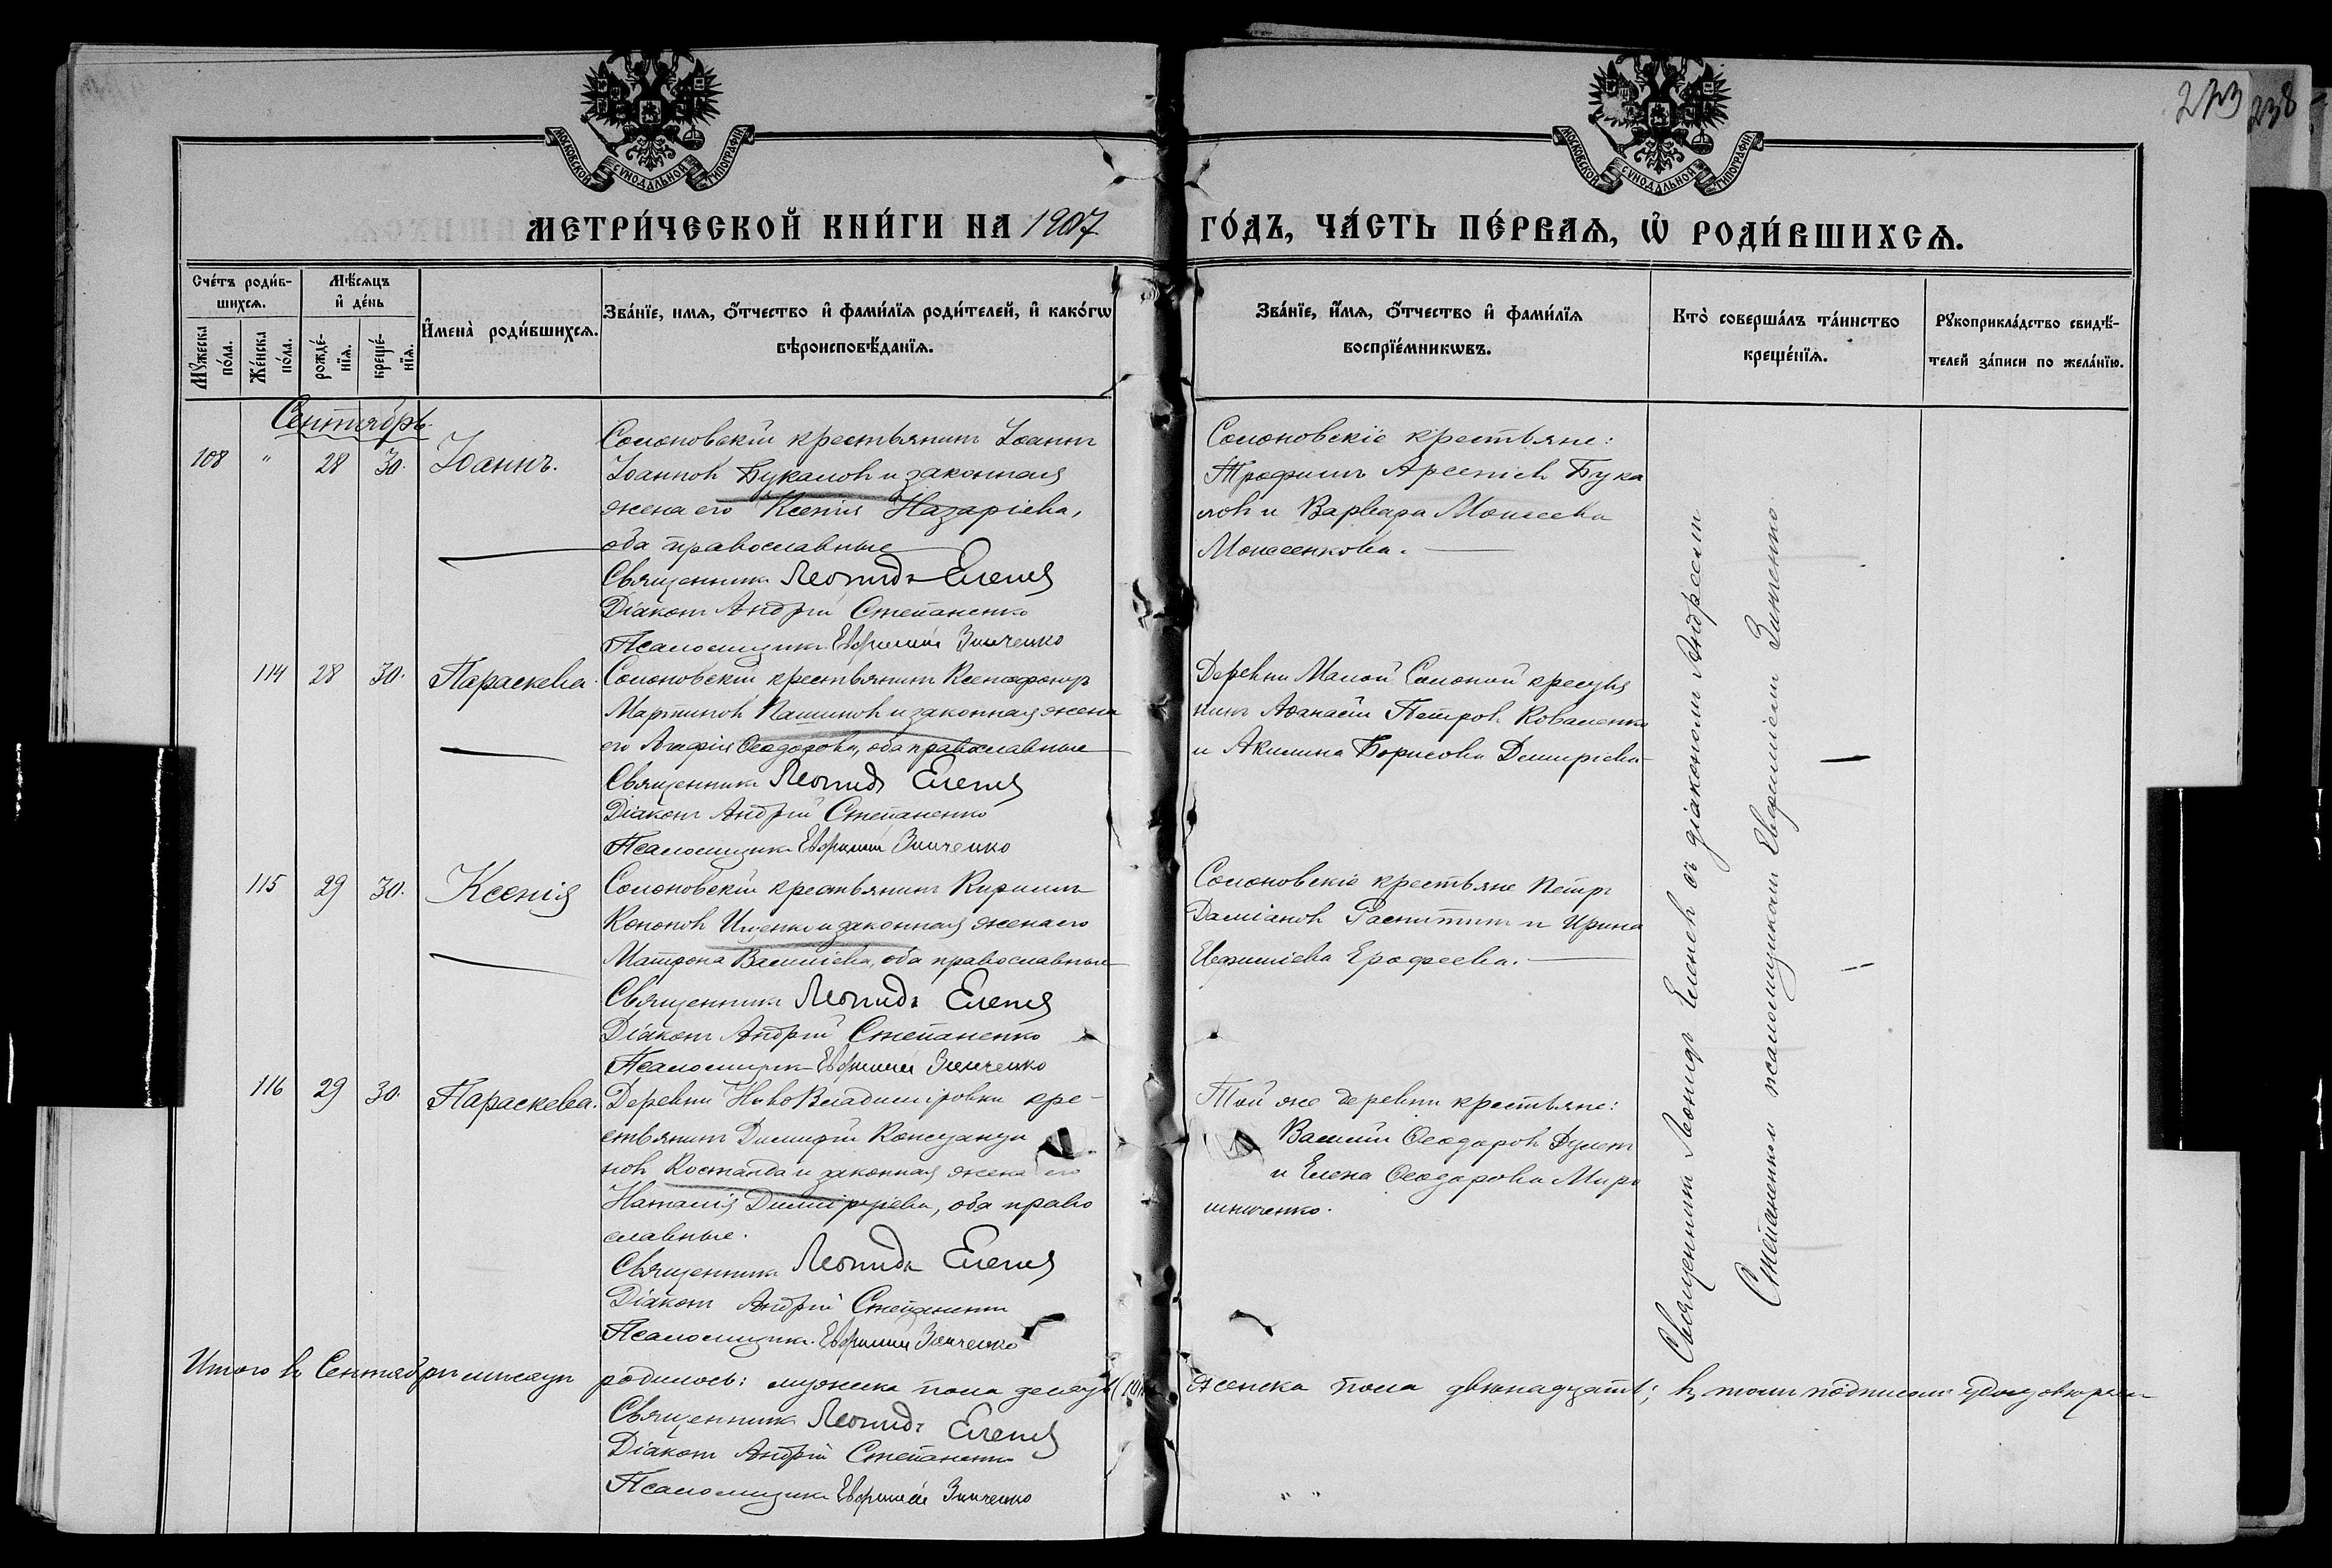 273 238
МОСКОВСКОЙ СѴНОДАЛЬНОЙ ТИПОГРАФІИ
МОСКОВСКОЙ СѴНОДАЛЬНОЙ ТИПОГРАФІИ
МЕТРИ́ЧЕСКОЙ КНИ́ГИ НА 1907 ГО́ДЪ, ЧА́СТЬ ПЕ́РВАѦ, Ѡ҆ РОДИ́ВШИХСѦ.
Сче́тъ роди́в-
шихсѧ.
Мꙋ́жеска по́ла.
Же́нска по́ла.
Мѣ́сѧцъ
и҆ де́нь
рожде́-
нїѧ.
креще́-
нїѧ.
И҆мена̀ роди́вшихсѧ.
Зва́нїе, имѧ, ѻ҆́тчество и҆ фами́лїѧ роди́телей, и҆ како́гѡ
вѣроисповѣ́данїѧ.
Зва́нїе, и҆́мѧ, ѻ҆́тчество и҆ фами́лїѧ
воспрїе́мникѡвъ.
Кто̀ соверша́лъ та́инство
креще́нїѧ.
Рꙋкоприкла́дство свидѣ́-
телей за́писи по жела́нїю.
Сентябрь.
108 " 28 30. Іоаннъ.
Солоновскій крестьянинъ Іоаннъ
Іоанновъ Букаловъ и законная
жена его Ксенія Назаріева,
оба православные
Священникъ Леонидъ Еленев
Діаконъ Андрій Степаненко
Псаломщикъ Евфимій Зинченко
Солоновскіе крестьяне:
Трофимъ Арсеніевъ Бука
ловъ и Варвара Моисеева
Моисеенкова.
114 28 30. Параскева.
Солоновскій крестьянинъ Ксенофонтъ
Мартиновъ Пашиновъ и законная жена
его Агафія Ѳеодорова, оба православные
Священникъ Леонидъ Еленев
Діаконъ Андрій Степаненко
Псаломщикъ Евфимій Зинченко
Деревни Малой Солоной крестья
нинъ Аѳанасій Петровъ Коваленко
и Акилина Борисова Димитріева
115 29 30. Ксенія
Солоновскій крестьянинъ Кириллъ
Кононовъ Ищенко и законная жена его
Матрона Василіева, оба православные
Священникъ Леонидъ Еленев
Діаконъ Андрій Степаненко
Псаломщикъ Евфимій Зинченко
Солоновскіе крестьяне Петръ
Даміановъ Распитинъ и Ирина
Евфиміева Ерофеева.
116 29 30. Параскева.
Деревни НовоВладиміровки кре-
стьянинъ Димитрій Константи
новъ Костанда и законная жена его
Наталія Димитріева, оба право
славные.
Священникъ Леонидъ Еленев
Діаконъ Андрій Степаненко
Псаломщикъ Евфимій Зинченко
Той же деревни крестьяне:
Василій Ѳеодоровъ
и Елена Ѳеодорова Миро
шниченко.
Священникъ Леонидъ Еленевъ съ діакономъ Андреемъ
Степаненкомъ и псаломщикомъ Евфиміемъ Зинченко
Итого въ Сентябрѣ мѣсяцѣ родилось: мужеска пола десять (10) женска пола двенадцать; въ томъ подписомъ удостовѣряемъ
Священникъ Леонидъ Еленев
Діаконъ Андрій Степаненко
Псаломщикъ Евфимій Зинченко